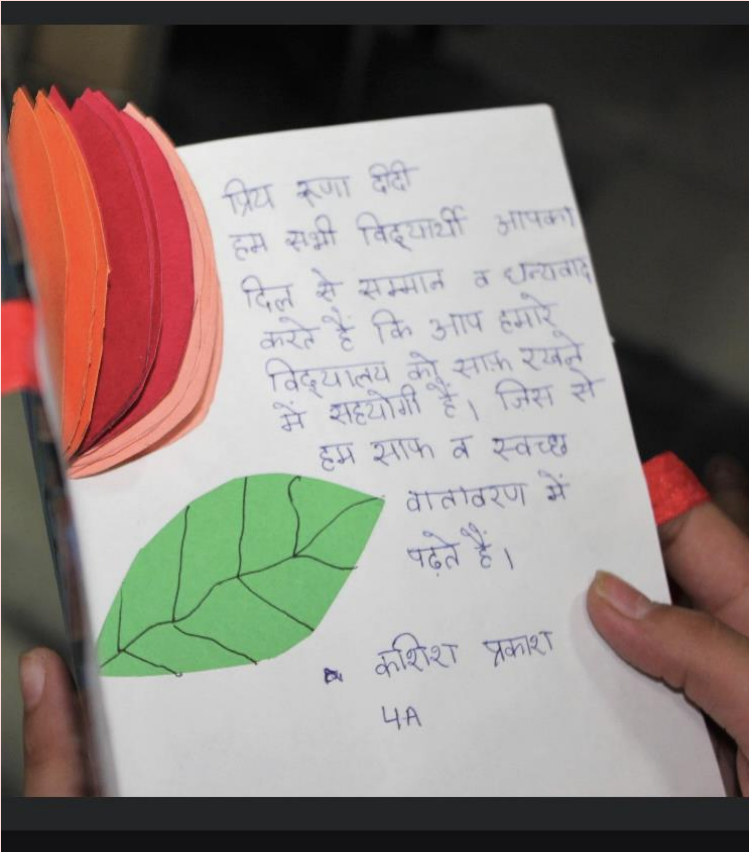 प्रिय रूणा दीदी
हम सभी विद्यार्थी आपका
दिल से सम्मान व धन्यवाद
करते हैं कि आप हमारे
विद्यालय को साफ़ रखने
में सहयोगी है। जिस से
हम साफ व स्वच्छ
वातावरण में
पढ़ते हैं।
कशिश प्रकाश
4A